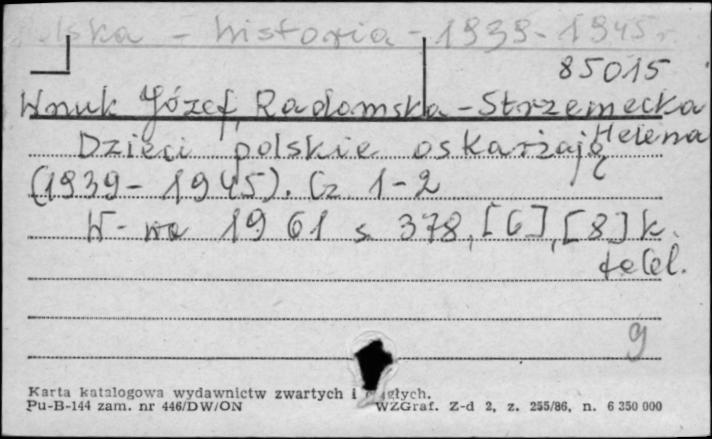 Polska - historia - 1939-1945 r.
85015
Wnuk Józef, Radomska-Strzemecka
Helena
Dzieci polskie oskarżają
(1939-1945). Cz 1-2
W-wa 1961 s 378, [6], [8] k.
tabl.
9
Karta katalogowa wydawnictw zwartych i ciągłych.
Pu-B-144 zam. nr 446/DW/ON WZGraf. Z-d 2, z. 255/86, n. 6 350 000